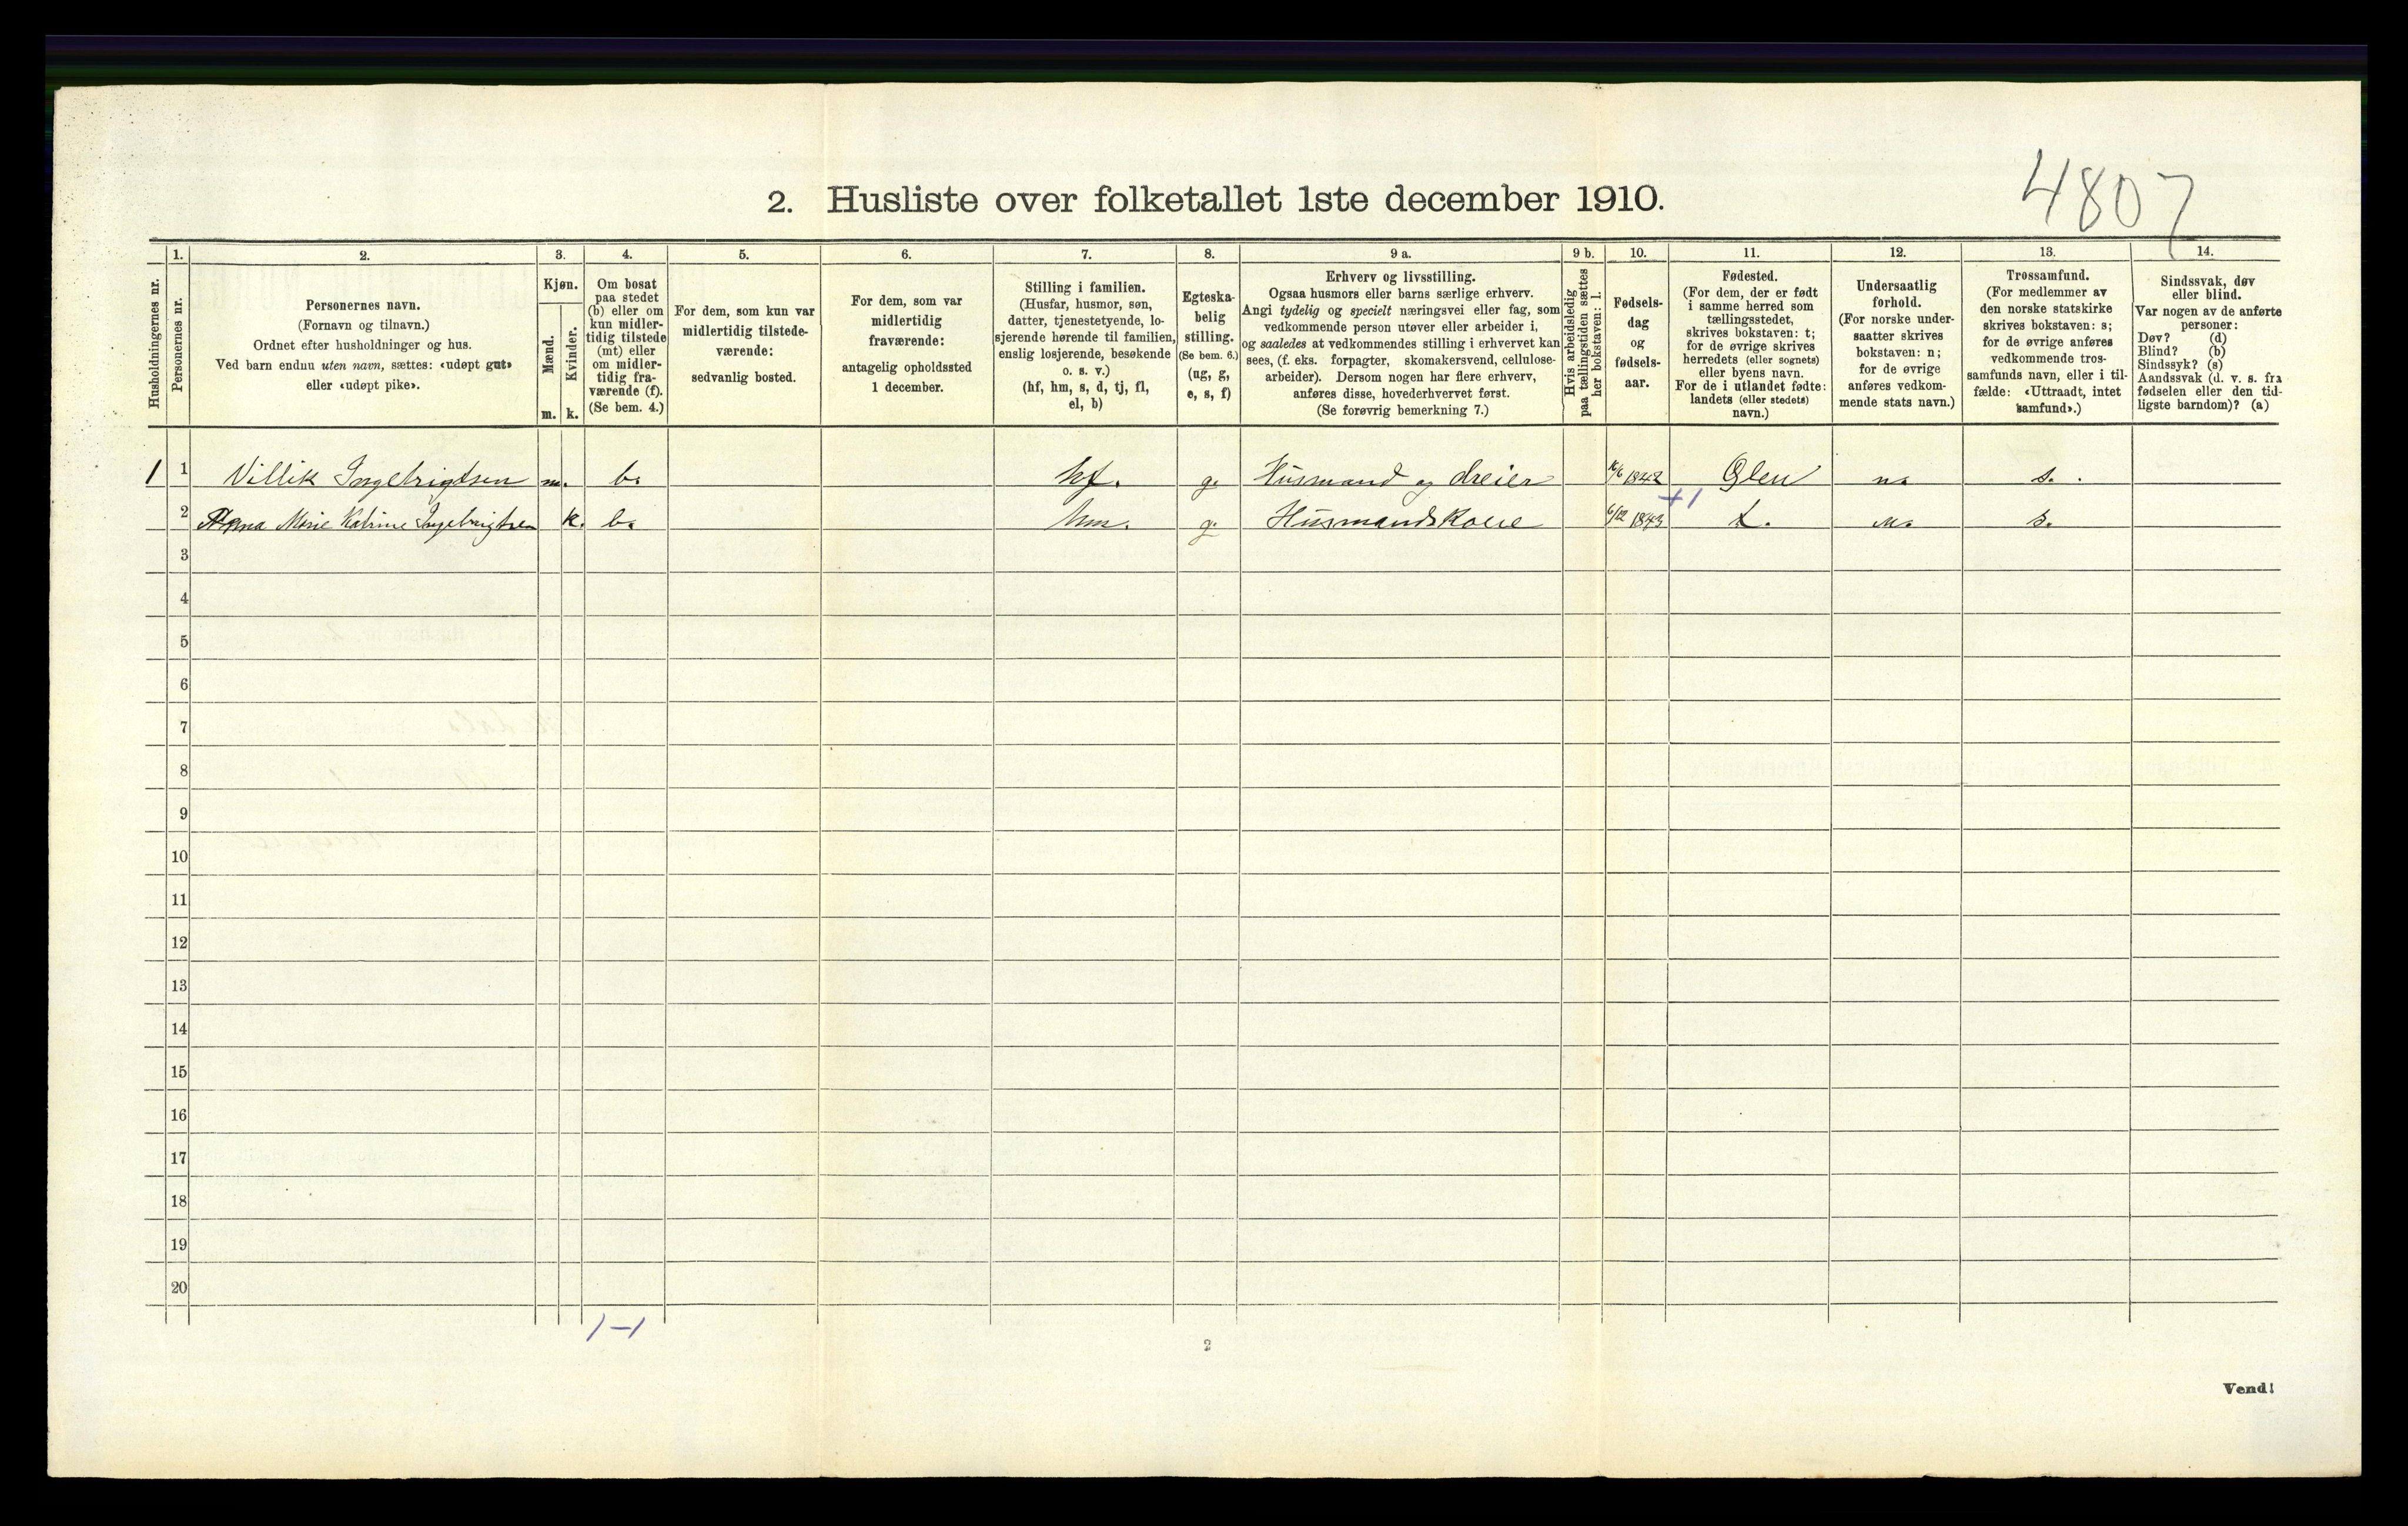 4807
2. Husliste over folketallet 1ste december 1910.
1. 2. 3. 4. 5. 6. 7. 8. 9 a. 9 b. 10. 11. 12. 13. 14.
Husholdningernes nr.
Personernes nr.
Personernes navn.
(Fornavn og tilnavn.)
Ordnet efter husholdninger og hus.
Ved barn endnu uten navn, sættes: «udøpt gut»
eller «udøpt pike».
Kjøn.
Mænd.
Kvinder.
m. k.
Om bosat
paa stedet
(b) eller om
kun midler-
tidig tilstede
(mt) eller
om midler-
tidig fra-
værende (f).
(Se bem. 4.)
For dem, som kun var
midlertidig tilstede-
værende:
sedvanlig bosted.
For dem, som var
midlertidig
fraværende:
antagelig opholdssted
1 december.
Stilling i familien.
(Husfar, husmor, søn,
datter, tjenestetyende, lo-
sjerende hørende til familien,
enslig losjerende, besøkende
o. s. v.)
(hf, hm, s, d, tj, fl,
el, b)
Egteska-
belig
stilling.
(Se bem. 6.)
(ug, g,
e, s, f)
Erhverv og livsstilling.
Ogsaa husmors eller barns særlige erhverv.
Angi tydelig og specielt næringsvei eller fag, som
vedkommende person utøver eller arbeider i,
og saaledes at vedkommendes stilling i erhvervet kan
sees, (f. eks. forpagter, skomakersvend, cellulose-
arbeider). Dersom nogen har flere erhverv,
anføres disse, hovederhvervet først.
(Se forøvrig bemerkning 7.)
Hvis arbeidsledig
paa tællingstiden sættes
her bokstaven: l.
Fødsels-
dag
og
fødsels-
aar.
Fødested.
(For dem, der er født
i samme herred som
tællingsstedet,
skrives bokstaven: t;
for de øvrige skrives
herredets (eller sognets)
eller byens navn.
For de i utlandet fødte:
landets (eller stedets)
navn.)
Undersaatlig
forhold.
(For norske under-
saatter skrives
bokstaven: n;
for de øvrige
anføres vedkom-
mende stats navn.)
Trossamfund.
(For medlemmer av
den norske statskirke
skrives bokstaven: s;
for de øvrige anføres
vedkommende tros-
samfunds navn, eller i til-
fælde: «Uttraadt, intet
samfund».)
Sindssvak, døv
eller blind.
Var nogen av de anførte
personer:
Døv? (d)
Blind? (b)
Sindssyk? (s)
Aandssvak (d. v. s. fra
fødselen eller den tid-
ligste barndom)? (a)
1 1 Villik Ingebrigtsen m. b. hf. g. Husmand og dreier 1842 n. s.
+1
2 Marie Katrine Ingebrigtsen k. b. hm. g. Husmandskone 6/12 1843 t. n. s.
3
4
5
6
7
8
9
10
11
12
13
14
15
16
17
18
19
20
1-1
2
Vend!